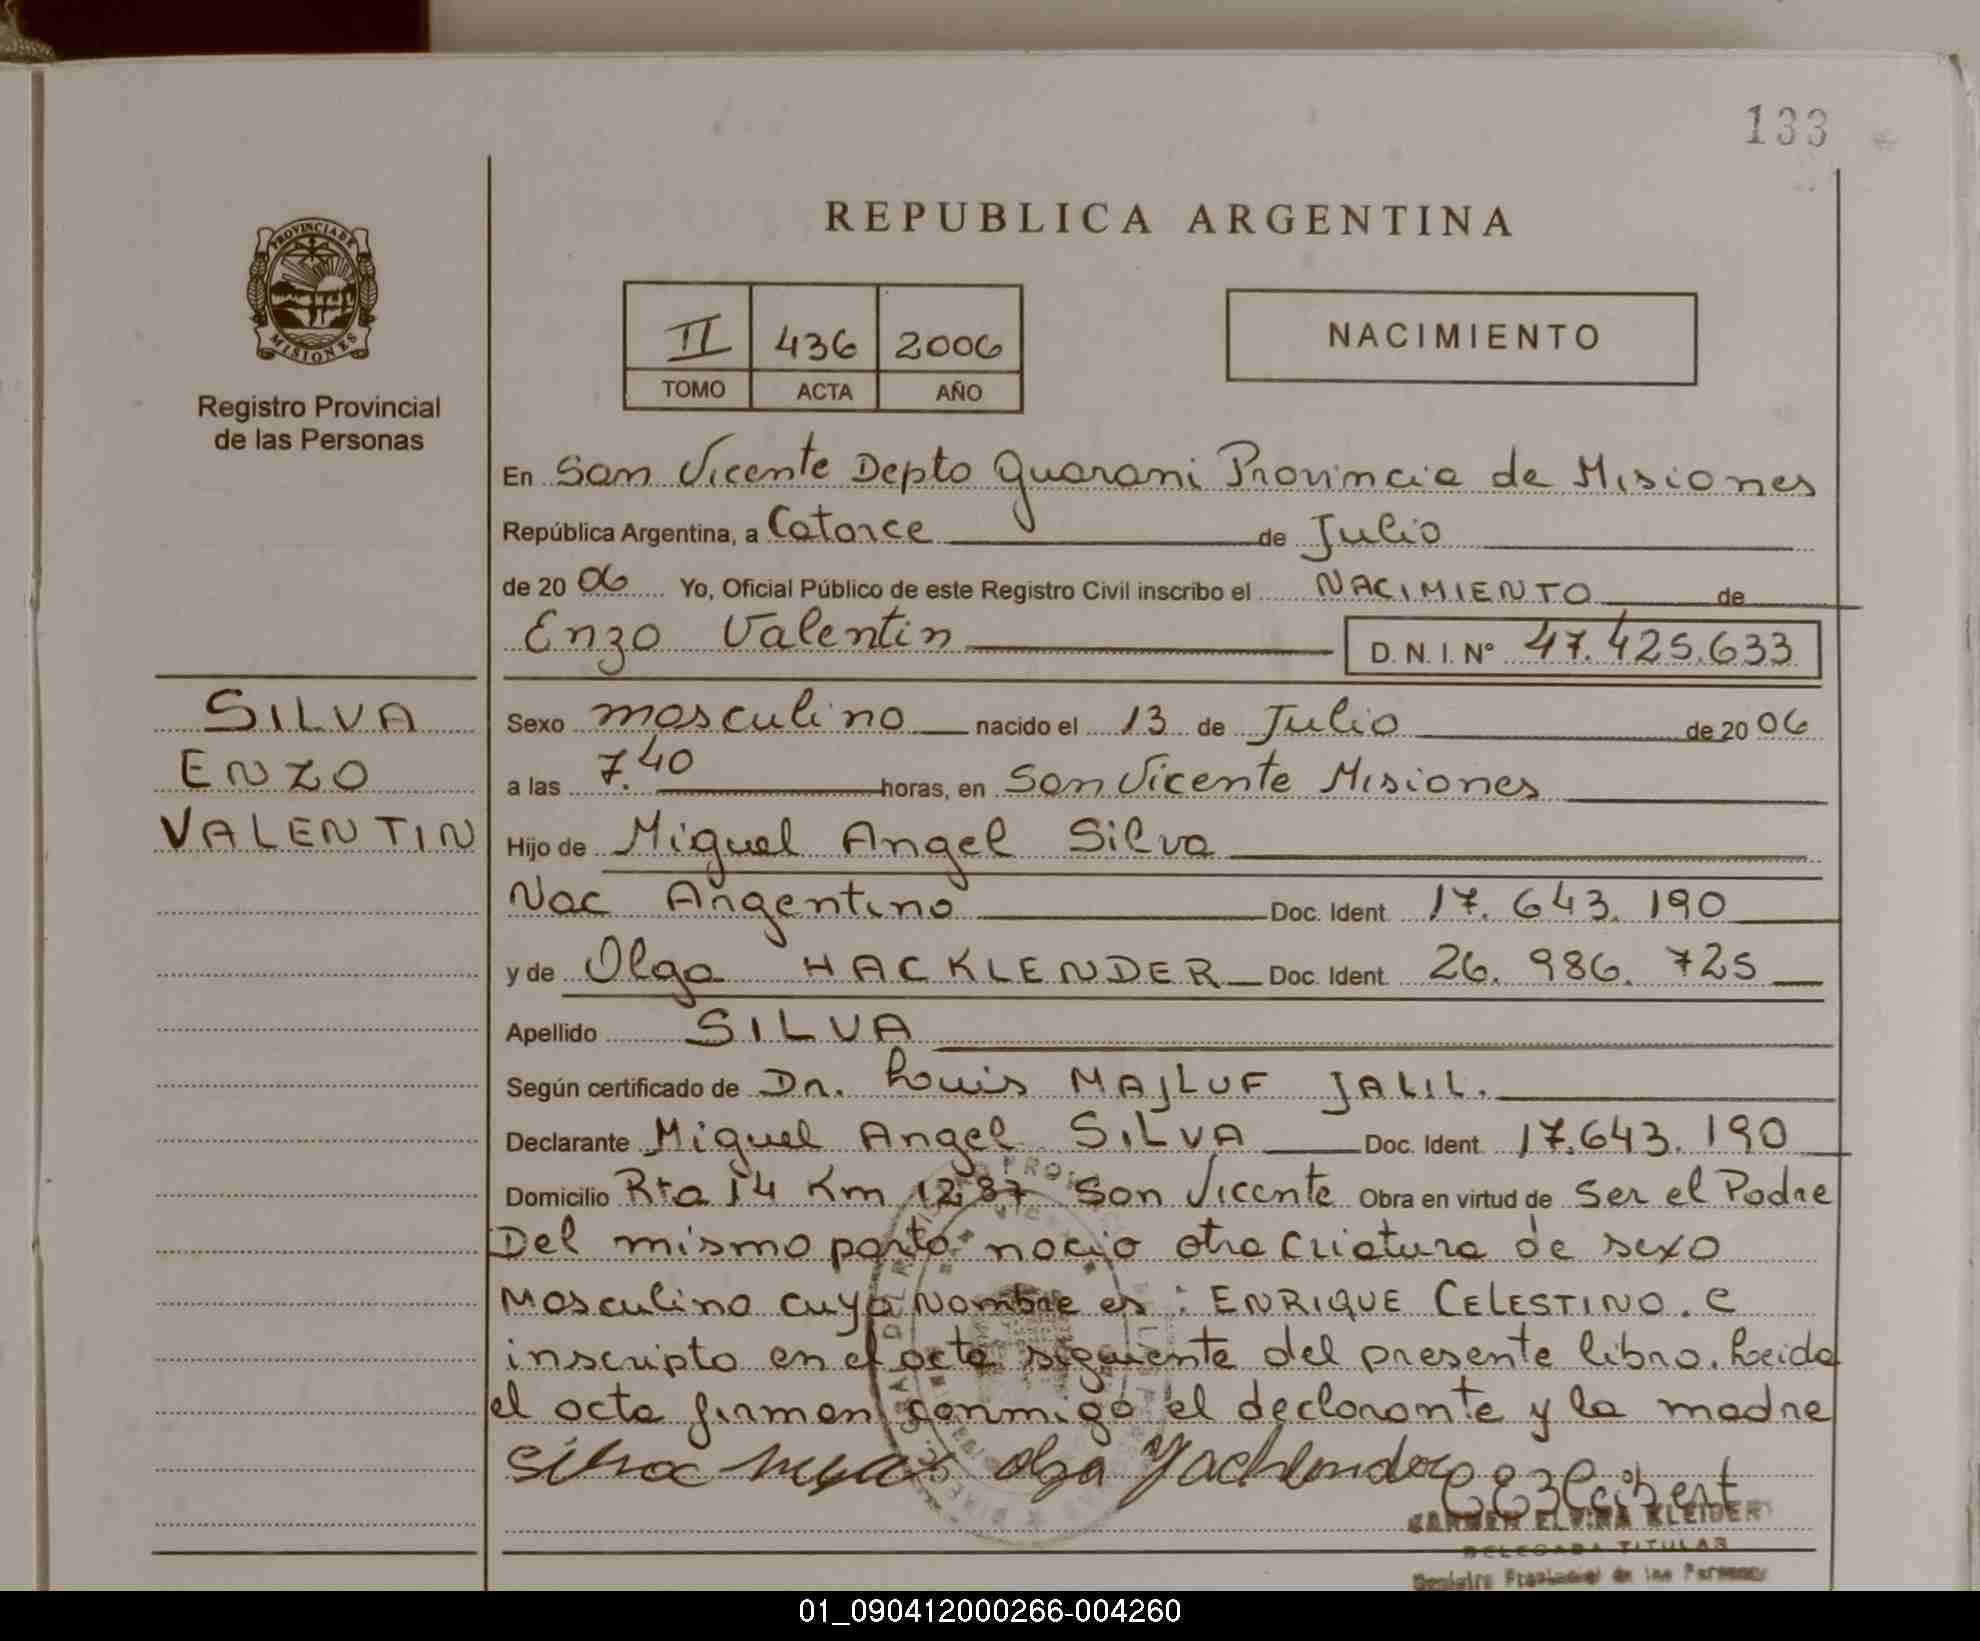 133
PROVINCIA DE
MISIONES
Registro Provincial
de las Personas
REPUBLICA ARGENTINA
II 436 2006
TOMO ACTA AÑO
NACIMIENTO
En San Vicente Depto Guarani Provincia de Misiones
República Argentina, a Catorce de Julio
de 20 06 Yo, Oficial Público de este Registro Civil inscribo el NACIMIENTO de
Enzo Valentin D. N. I. N° 47.425.633
SILVA
ENZO
VALENTIN
Sexo masculino nacido el 13 de Julio de 20 06
a las 7.40 horas, en San Vicente Misiones
Hijo de Miguel Angel Silva
Nac Argentino Doc. Ident. 17.643.190
y de Olga HACKLENDER Doc. Ident. 26.986.725
Apellido SILVA
Según certificado de Dr. Louis MAJLUF JALIL.
Declarante Miguel Angel SILVA Doc. Ident. 17.643.190
Domicilio Rta 14 Km 1287 San Vicente Obra en virtud de Ser el Padre
Del mismo parto nacio otra criatura de sexo
Masculino cuyo Nombre es: ENRIQUE CELESTINO. e
inscripto en el acta siguiente del presente libro. Leida
el acta firman conmigo el declarante y la madre
Silva olga
CARMEN ELVIRA KLEIBERT
DELEGADA TITULAR
Registro Provincial de las Personas
01_090412000266-004260